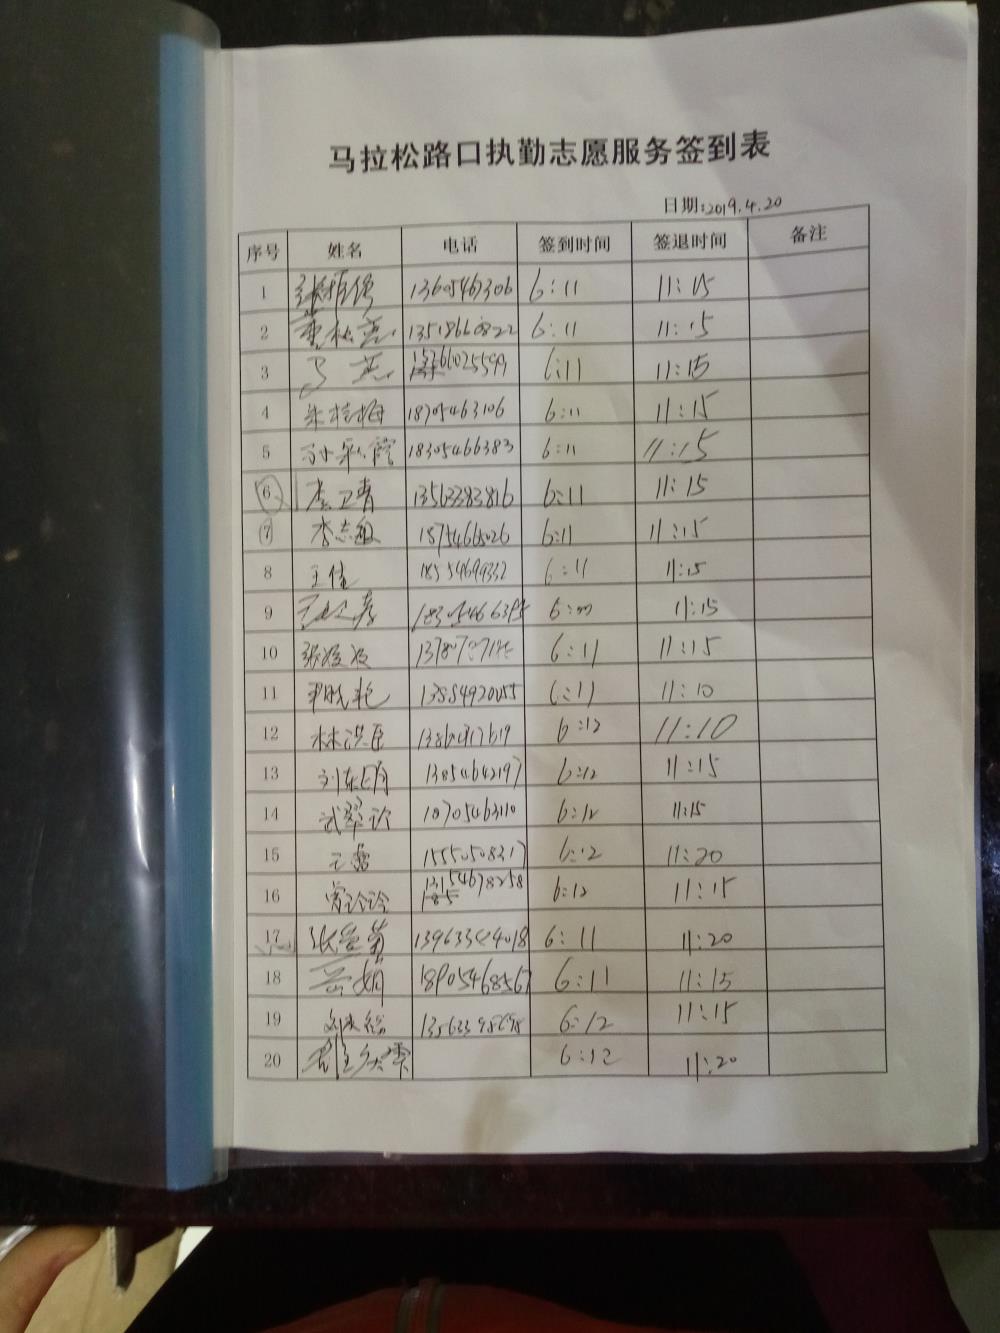 马拉松路口执勤志愿服务签到表
日期:2019.4.20
序号 姓名 电话 签到时间 签退时间 备注
1 13605467306 6:11 11:15
2 13518660822 6:11 11:15
3 马 燕 6:11 11:15
4 朱桂梅 18705463106 6:11 11:15
5 孙彩霞 18305466383 6:11 11:15
6 李卫青 13563383816 6:11 11:15
7 李志组 18754665026 6:11 11:15
8 王佳 18554699332 6:11 11:15
9 6:11 11:15
10 6:11 11:15
11 尹晓艳 13884920055 6:11 11:10
12 林洪臣 6:12 11:10
13 刘东明 13854642197 6:12 11:15
14 武翠玲 18705463110 6:12 11:15
15 王露 15550508317 6:12 11:20
16 曾玲玲 6:12 11:15
17 6:11 11:20
18 岳娟 18905468567 6:11 11:15
19 6:12 11:15
20 6:12 11:20